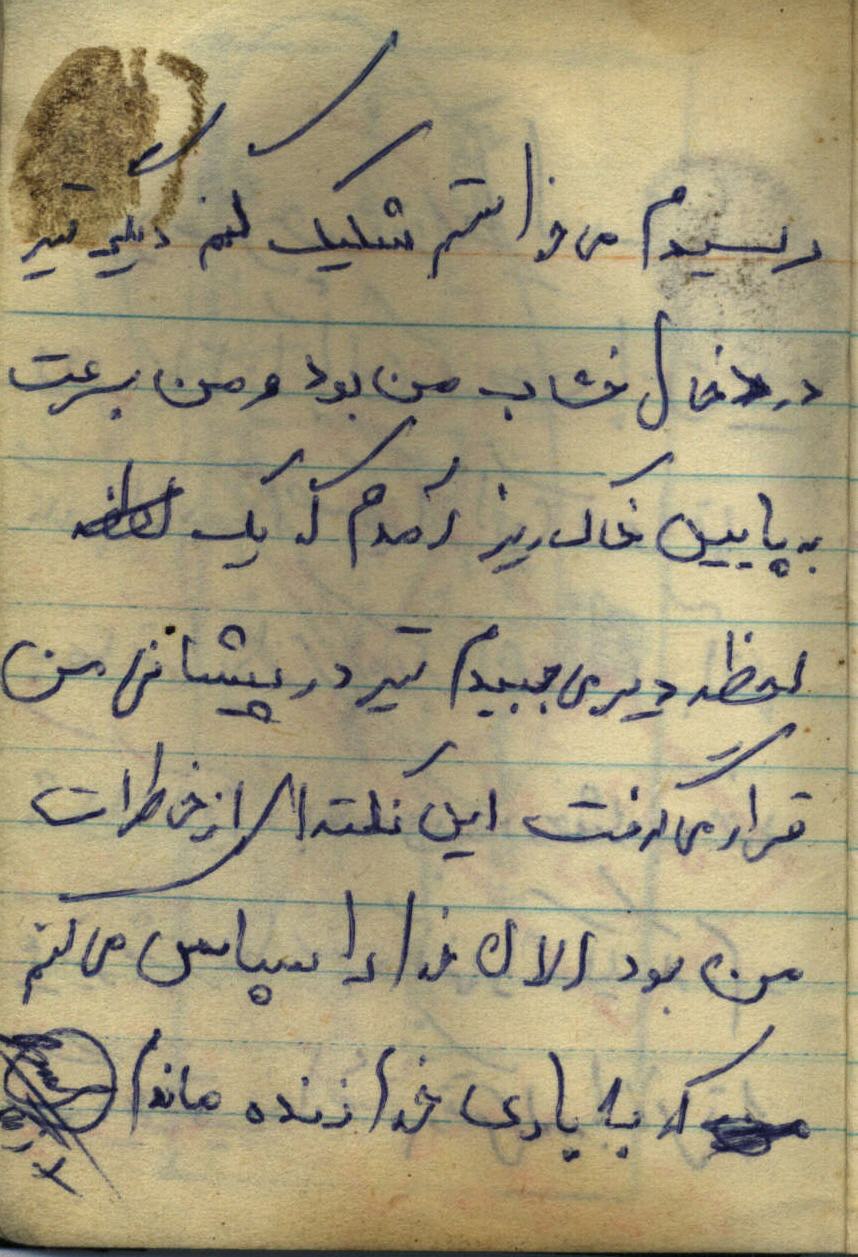 رسیدم می خواستم شلیک کنم دیگر تیر
در خال خشاب من بود و من بسرعت
به پایین خاک ریز آمدم که یک
لحظه دیر می جنبیدم تیر در پیشانی من
قرار می گرفت این نکته ای از خاطرات
من بود الان خدا را سپاس می کنم
که به یاری خدا زنده ماندم